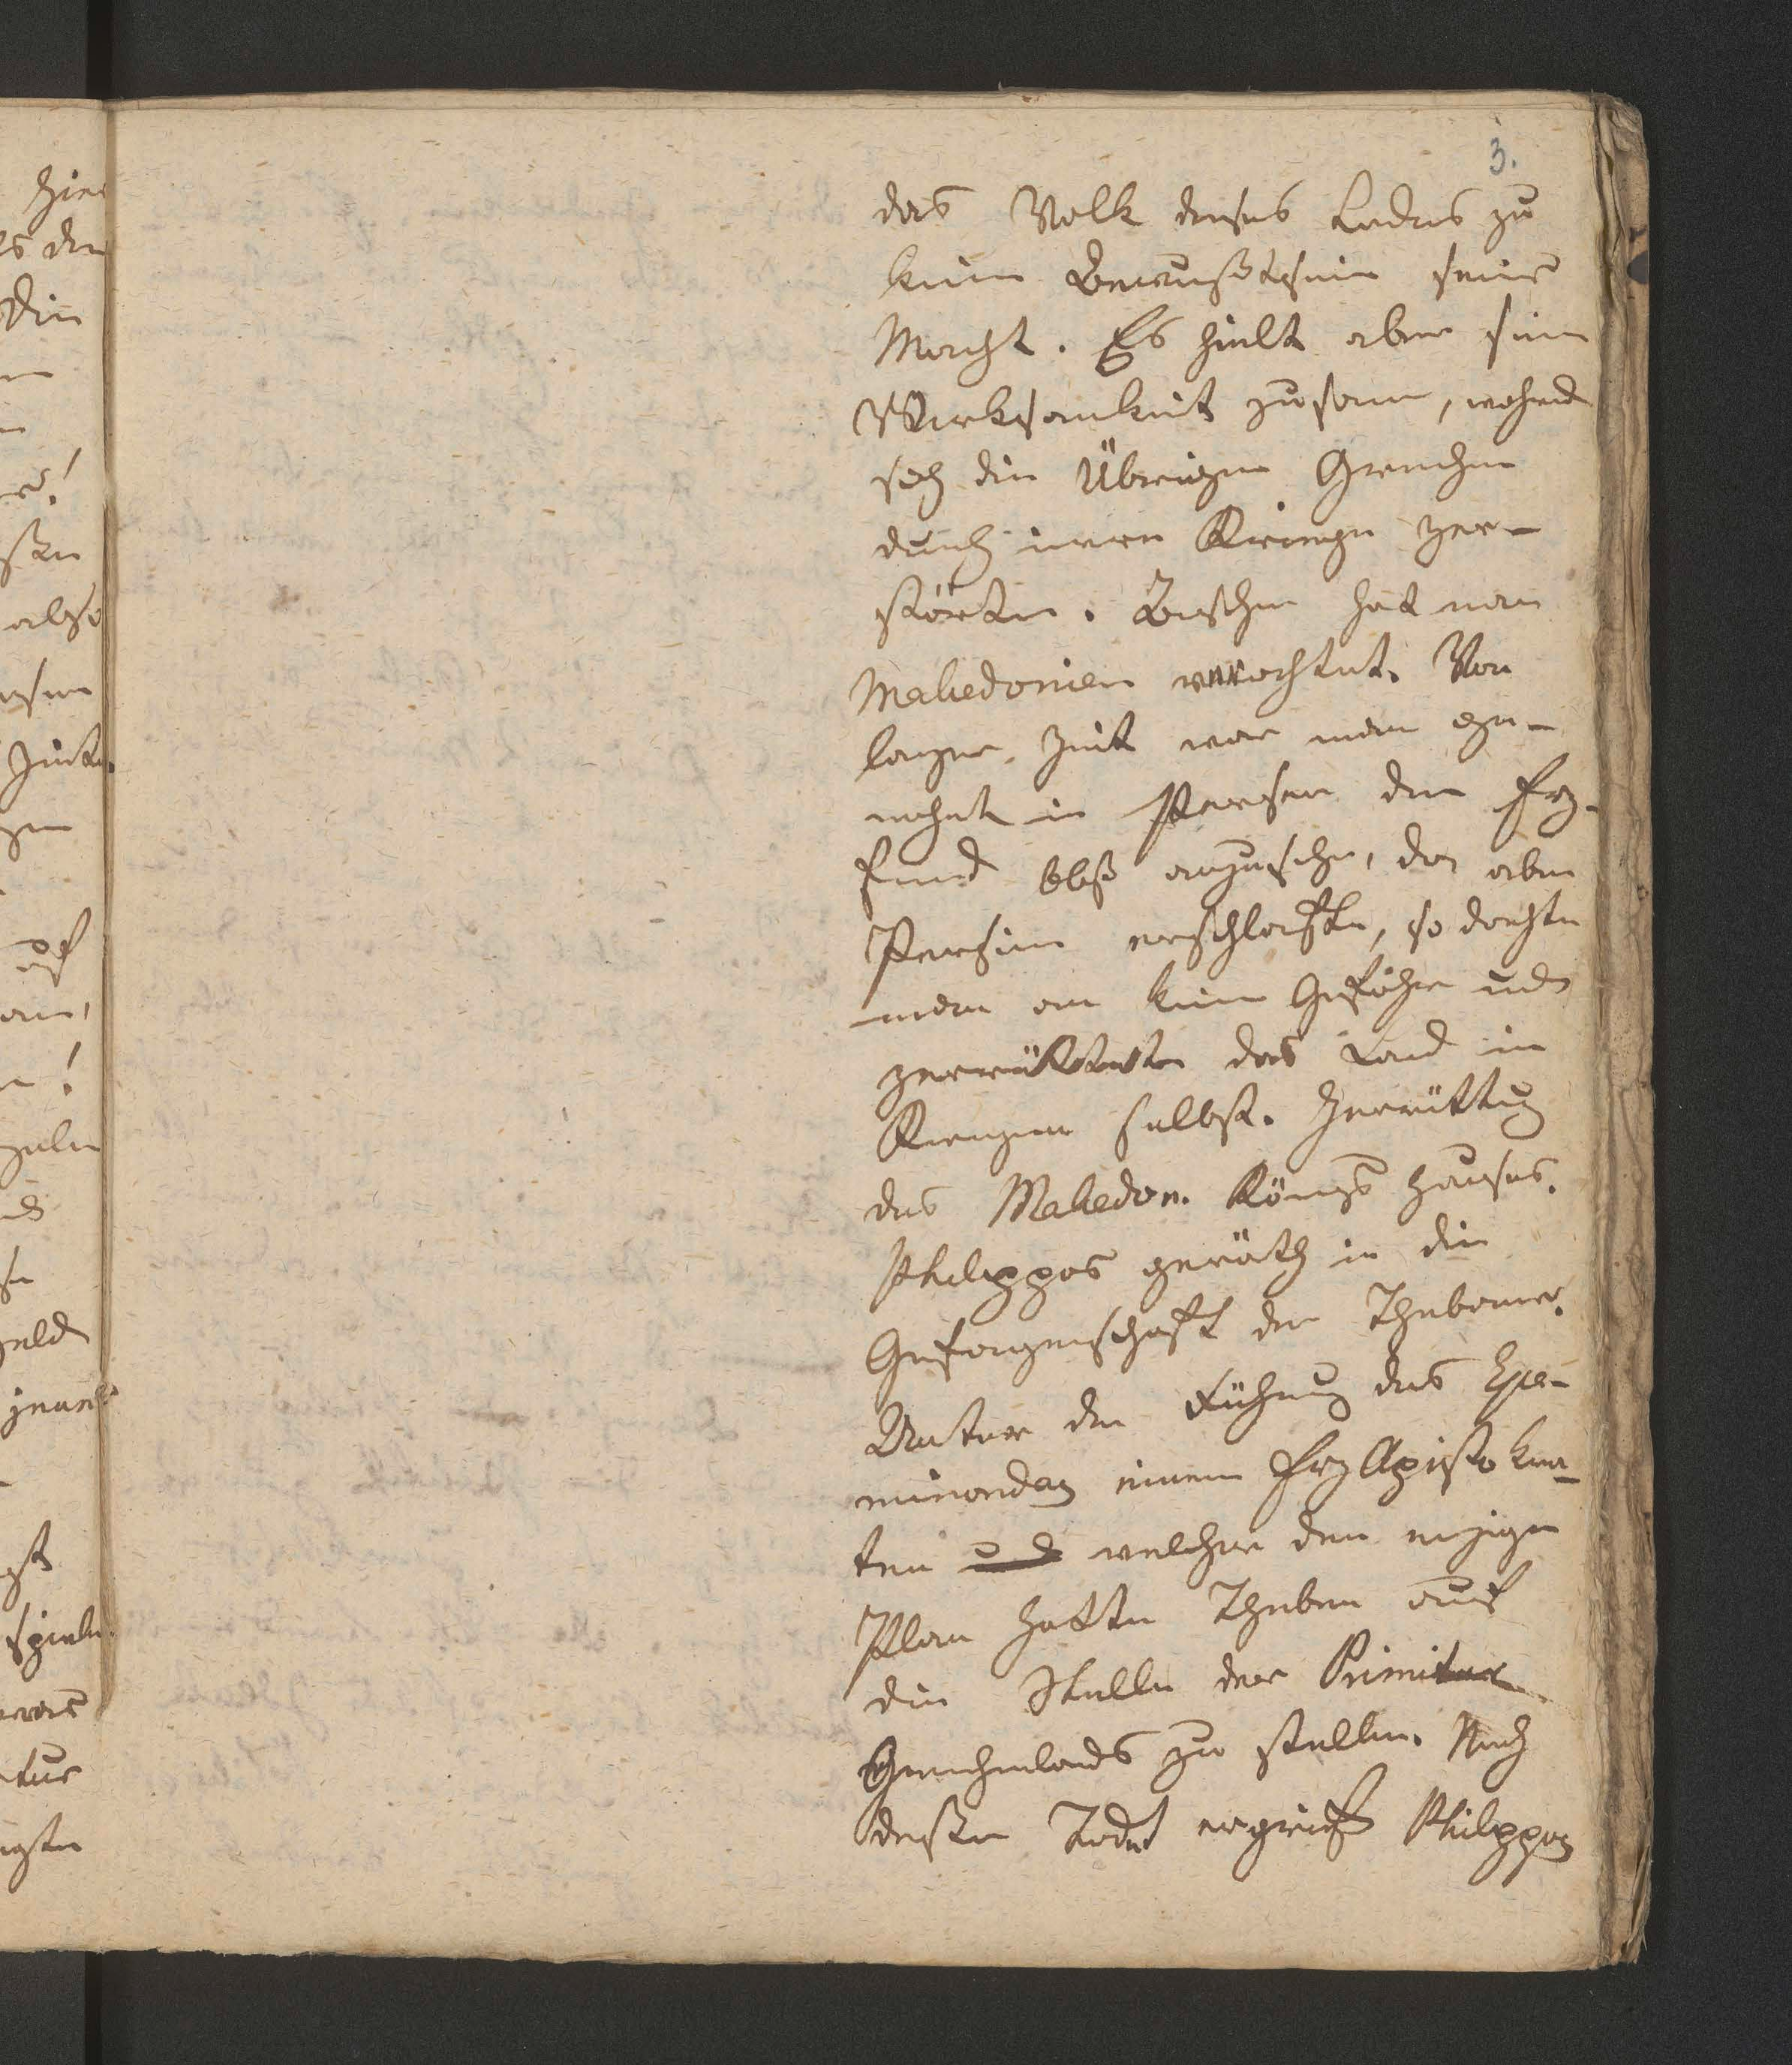 3.
das Volk dieses Lades zu
keim Bewußtsein seiner
Macht. Es hielt aber sein
Wirksamkeit zusam, wahred
sich die Übrigen Griechen
durch inern Kriege zer-
störten. Bisher hat man
Makedonien verachtet. Von
langer Zeit war man ge-
wohnt in Persern den Erz-
feind bloß anzusehe, da aber
Persien erschlaffte, so dachte
man an keine Gefahr und
zerrüttete das Land in
Kriegen selbst. Zerrüttug
des Makedon. Königs Hauses.
Philippos geräth in die
Gefangenschaft der Thebaner.
Unter der Führug des Epa-
minondas einem Erz Aristokra-
ten und welcher den einzigen
Plan hatte Theben auf
die Stelle der Primitur
Griechenlands zu stellen. Nach
dessen Todt ergreift Philippos